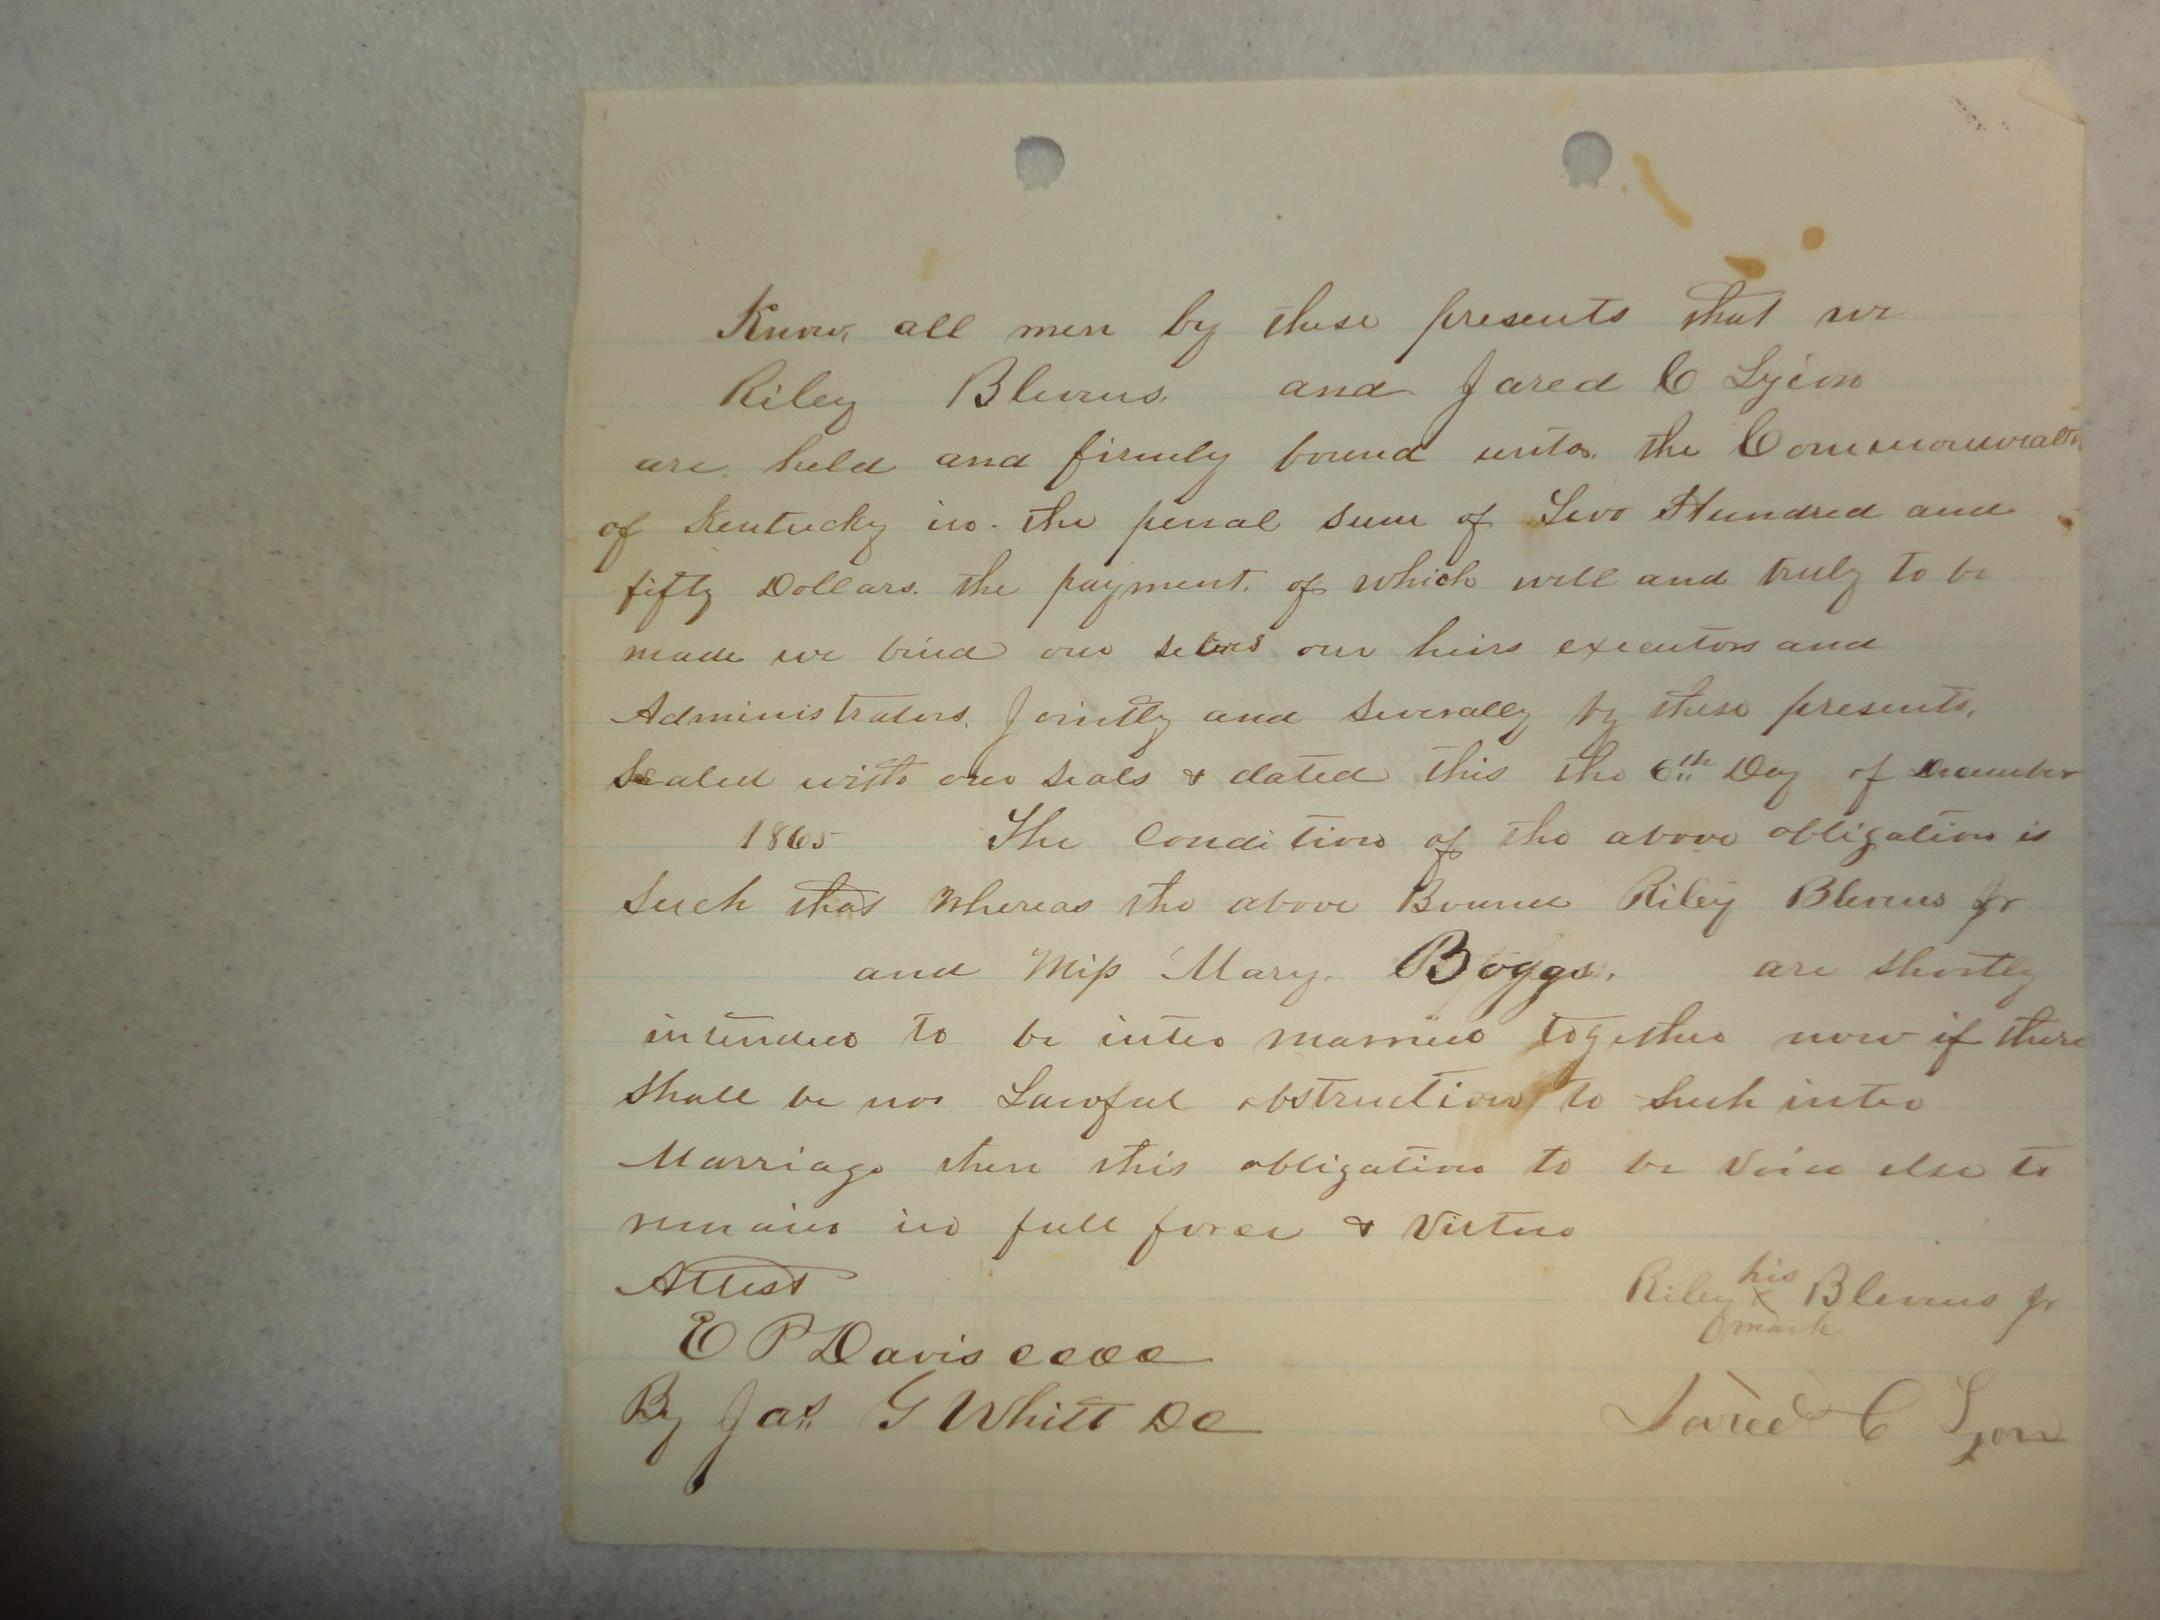 Know all men by these presents that we
Riley Blevins and Jared C Lyion
are held and firmly bound unto the Commonwealth
of Kentucky in the penal sum of Two Hundred and
fifty Dollars. the payment. of which well and truly to be
made we bind our selves our heirs executors and
Administrators. Jointly and Severally by these presents,
Sealed with our seals & dated this the 6th Day of December
1865 The Condition of the above obligation is
Such that Whereas the above Bound Riley Blevins Jr
and Miss Mary. Boggs. are shortly
intended to be inter married together now if there
Shall be no Lawful obstruction to such inter
Marriage then this obligation to be Void else to
remain in full force & Virtue
Attest
Riley his x mark Blevins Jr
E P Davis
By Jas G Whitt DC
Jared C Lyon